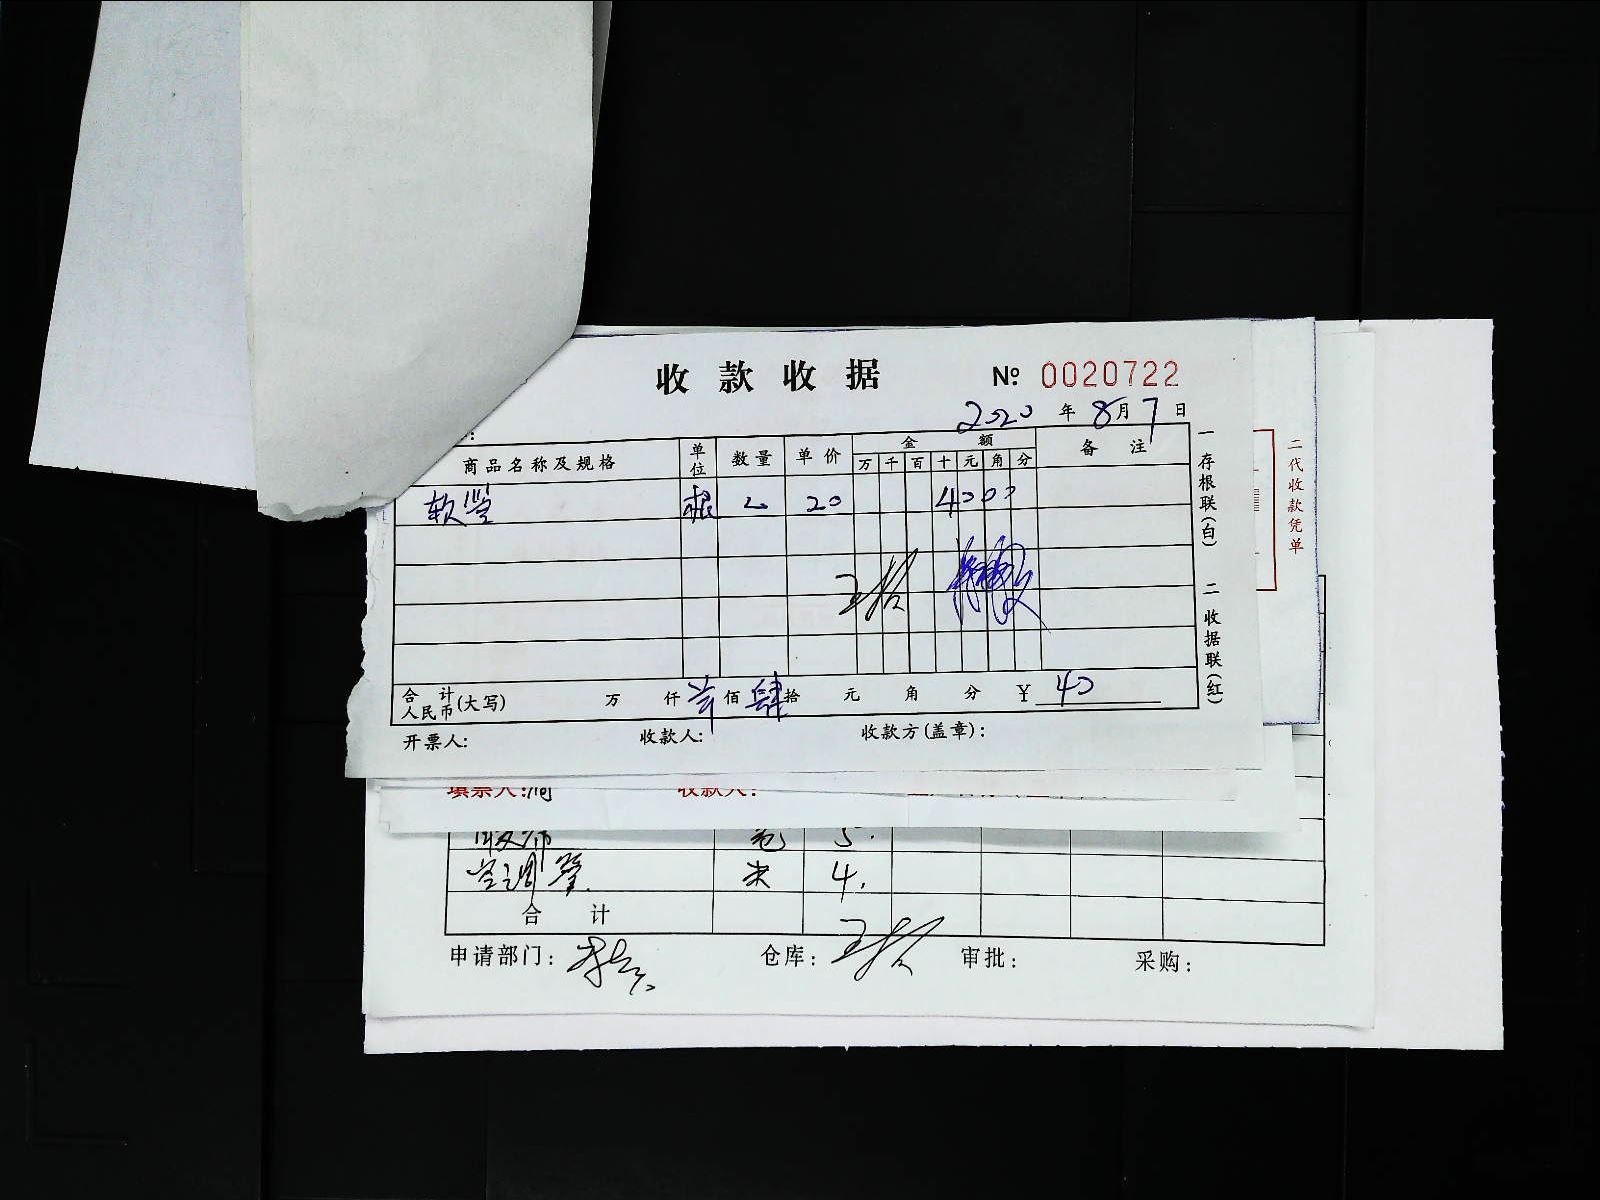 收款收据 № 0020722
2020 年 8 月 7 日
:
商品名称及规格 单位 数量 单价 金额 备注
万 千 百 十 元 角 分
软管 根 2 20 4 0 0 0
合计人民币(大写) 万 仟 佰 肆 拾 元 角 分 ¥ 40
开票人: 收款人: 收款方(盖章):
一存根联(白) 二收据联(红)
二代收款凭单
填票人: 收款人:
卷 5.
空调管 米 4.
合计
申请部门: 仓库: 审批: 采购: